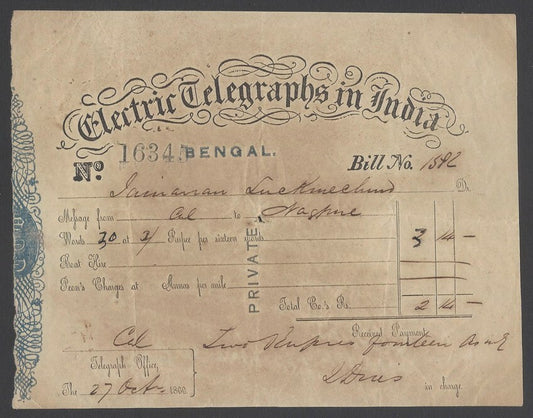 Electric Telegraphs in India
No. 16345 BENGAL. Bill No. 1592
Dr.
Message from Cal to Nagpore
Words 30 at 3/ Rupee per sixteen words 3 14 —
Boat Hire
Peon's Charges at Annas per mile
PRIVATE
Total Co.'s Rs. 2 14 —
Received Payment
Cal Two Rupees fourteen As
Telegraph Office,
The 27 Octr. 1860
in charge